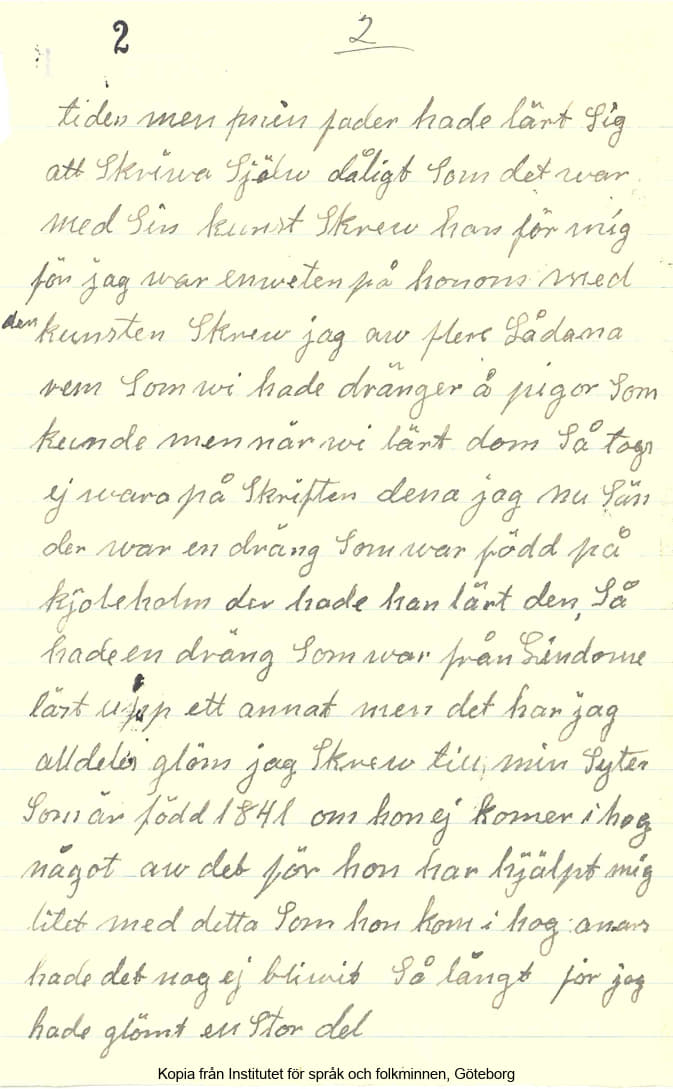 2
2
tiden men min fader hade lärt Sig
att Skriwa Sjölw dåligt Som det war
med Sin kunst Skrew han för mig
för jag war enweten på honom med
den kunsten Skrew jag aw flere Sådana
rem Som wi hade dränger å pigor Som
kunde men när wi lärt dom Så togs
ej wara på Skriften dena jag nu Sän
der war en dräng Som war född på
kjobeholm der hade han lärt den, Så
hade en dräng Som war från Lindome
läst upp ett annat men det har jag
alldeles glöm jag Skrew till min Syter
Som är född 1841 om hon ej komer i hog
något aw det för hon har hjälpt mig
litet med detta Som hon kom i hog anars
hade det nog ej bliwit Så långt för jag
hade glömt en Stor del
Kopia från Institutet för språk och folkminnen, Göteborg